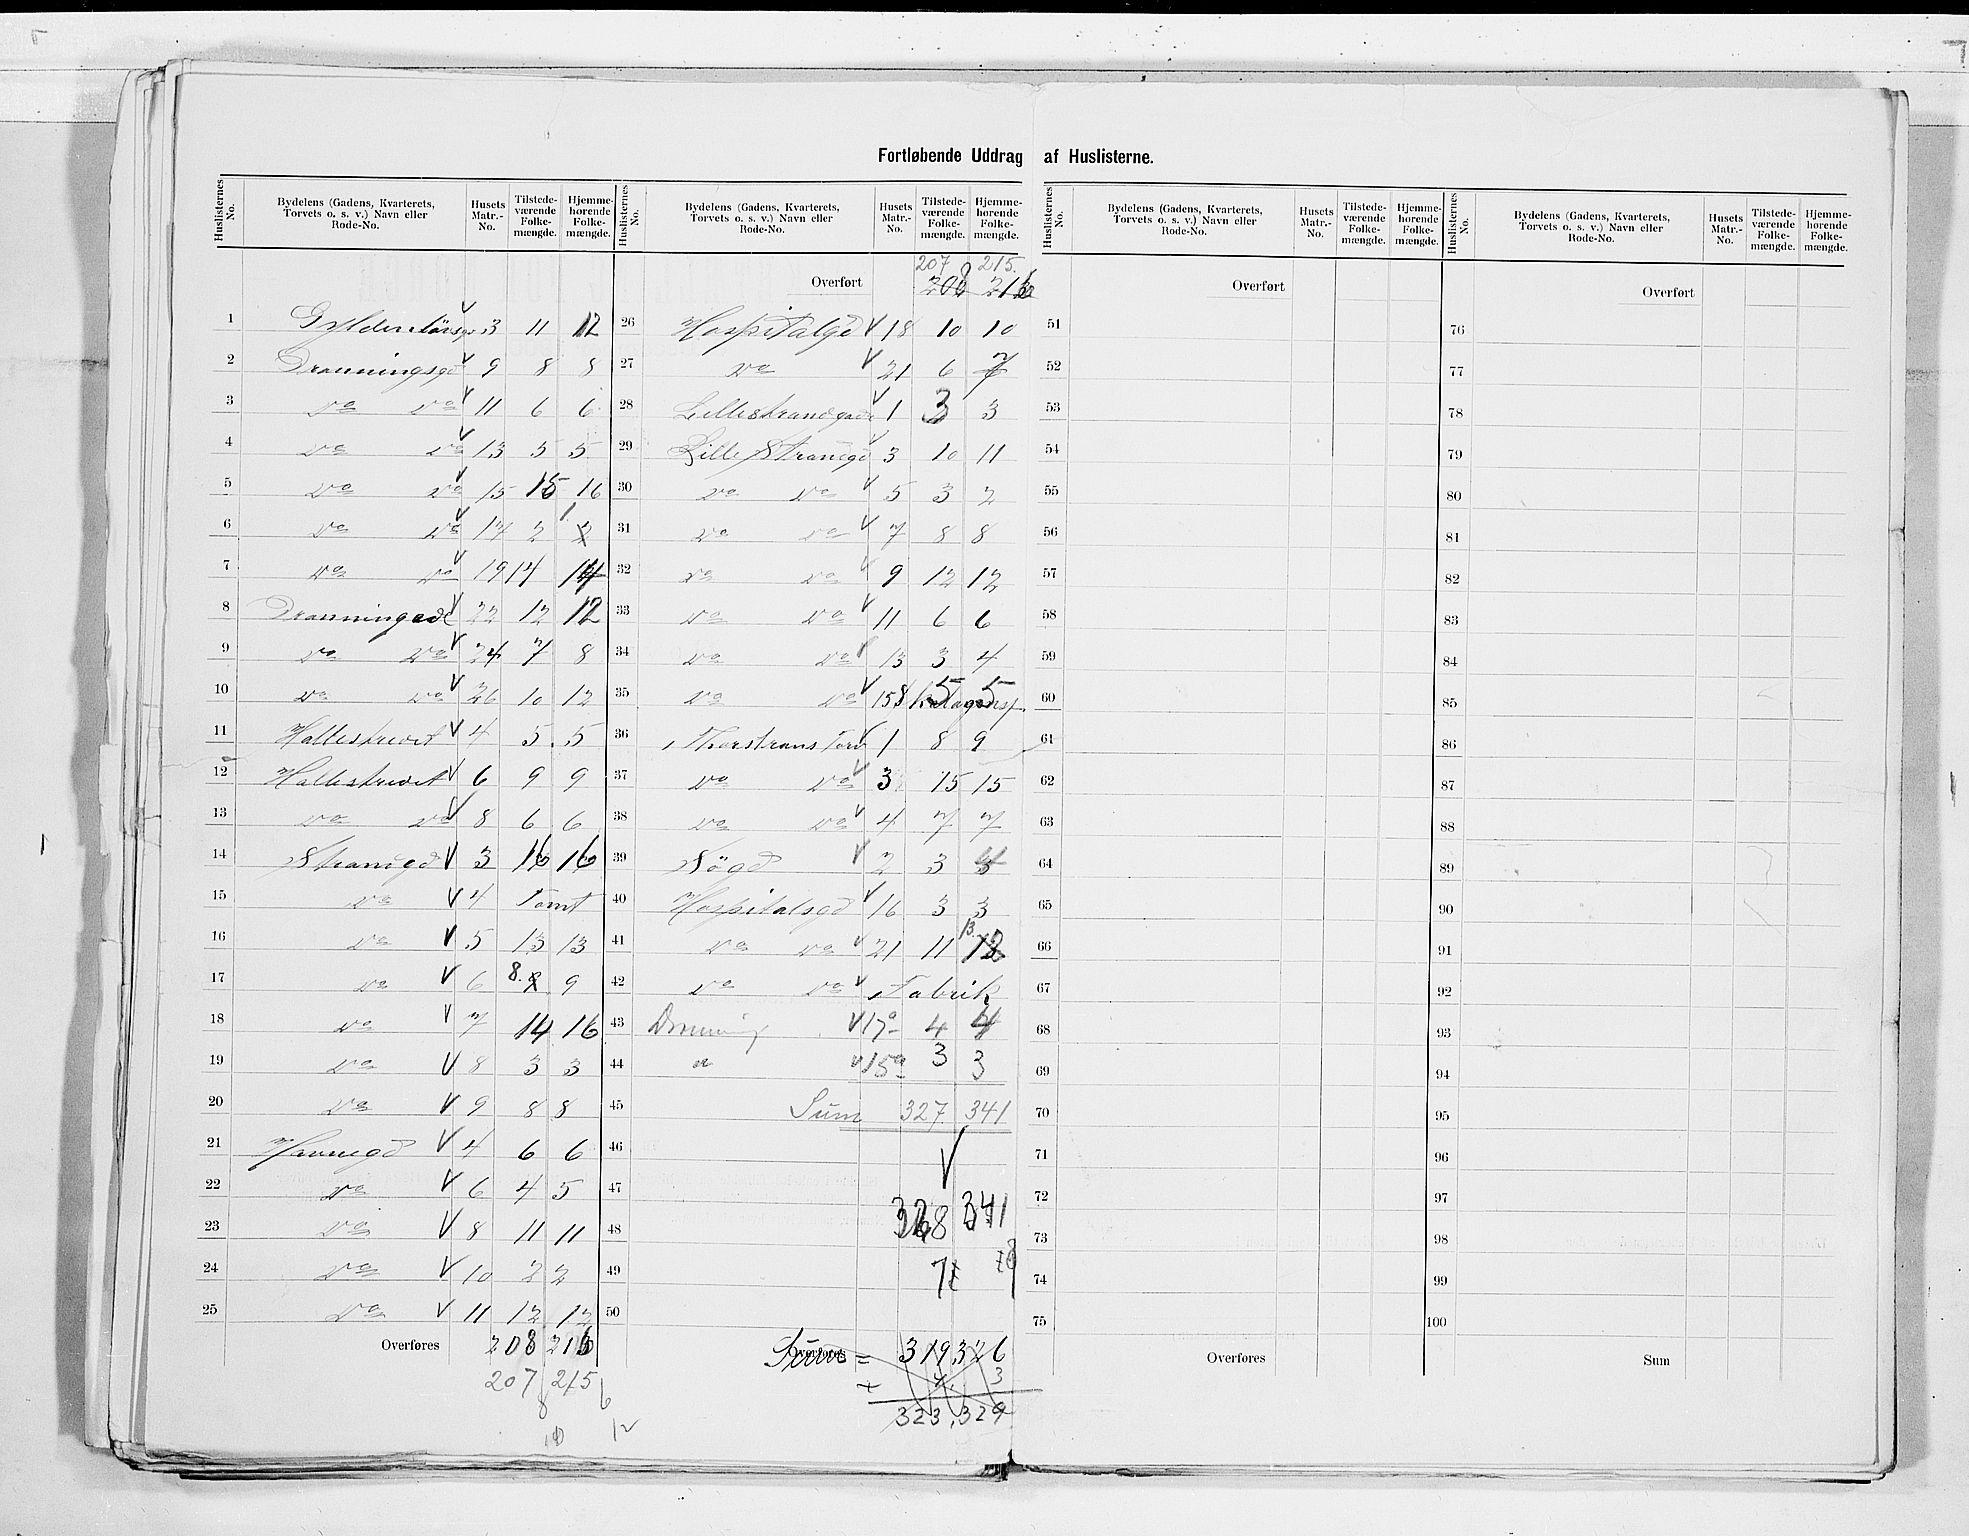 Fortløbende Uddrag af Huslisterne.
Huslisternes No. Bydelens (Gadens, Kvarterets, Torvets o. s. v.) Navn eller Rode-No. Husets Matr.-No. Tilstedeværende Folkemængde. Hjemmehørende Folkemængde.
1 Gyldenløvsg 3 11 12
2 Dronningsgd 9 8 8
3 do do 11 6 6
4 do do 13 5 5
5 do do 15 15 16
6 do do 17 2 1
7 do do 19 14 14
8 Dronninggd 22 12 12
9 do do 24 7 8
10 do do 26 10 12
11 Hallestredet 4 5 5
12 Hallestredet 6 9 9
13 do do 8 6 6
14 Strandgd 3 16 16
15 do 4 Tomt
16 do 5 13 13
17 do 6 8 9
18 do 7 14 16
19 do 8 3 3
20 do 9 8 8
21 Havnegd 4 6 6
22 do 6 4 5
23 do 8 11 11
24 do 10 2 2
25 do 11 12 12
Overføres 208 216
207 215
8 6
12
Huslisternes No. Bydelens (Gadens, Kvarterets, Torvets o. s. v.) Navn eller Rode-No. Husets Matr.-No. Tilstedeværende Folkemængde. Hjemmehørende Folkemængde.
207 215.
Overført 208 216
26 Hospitalgd 18 10 10
27 do 21 6 7
28 Lillestrandgade 1 3 3
29 Lille Strandgd 3 10 11
30 do do 5 3 2
31 do do 7 8 8
32 do do 9 12 12
33 do do 11 6 6
34 do do 13 3 4
35 do do 15 5 5
36 Torv 1 8 9
37 do do 3 15 15
38 do do 4 7 7
39 Søgd 2 3
40 Hospitalsgd 16 3 3
41 do do 21 11 13
42 do do Fabrik
43 Dronning 17a 4 4
44 " 15a 3 3
45 Sum 327 341
46
47 328 341
48
49
50
Sum = Overføres 319 326
+ 4 3
323 329
Huslisternes No. Bydelens (Gadens, Kvarterets, Torvets o. s. v.) Navn eller Rode-No. Husets Matr.-No. Tilstedeværende Folkemængde. Hjemmehørende Folkemængde.
Overført
51
52
53
54
55
56
57
58
59
60
61
62
63
64
65
66
67
68
69
70
71
72
73
74
75
Overføres
Huslisternes No. Bydelens (Gadens, Kvarterets, Torvets o. s. v.) Navn eller Rode-No. Husets Matr.-No. Tilstedeværende Folkemængde. Hjemmehørende Folkemængde.
Overført
76
77
78
79
80
81
82
83
84
85
86
87
88
89
90
91
92
93
94
95
96
97
98
99
100
Sum